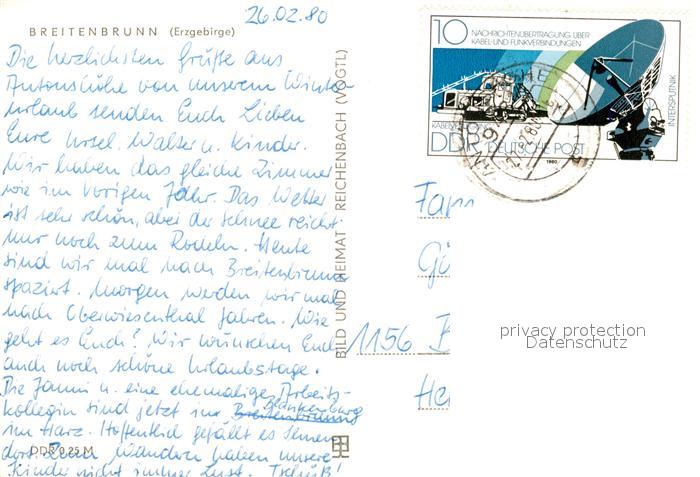 26.02.80
BREITENBRUNN (Erzgebirge)
Die herzlichsten Grüße aus
Antonshöhe von unserem Winter-
urlaub senden Euch Lieben
Eure Ursel, Walter u. Kinder.
Wir haben das gleiche Zimmer
wie im vorigen Jahr. Das Wetter
ist sehr schön, aber der Schnee reicht
nur noch zum Rodeln. Heute
sind wir mal nach Breitenbrunn
spaziert. Morgen werden wir mal
nach Oberwiesenthal fahren. Wie
geht es Euch? Wir wünschen Euch
auch noch schöne Urlaubstage.
Die u. eine ehemalige Arbeits-
kollegin sind jetzt in Blankenburg
im Harz. Hoffentlich gefällt es Ihnen
dort. Zum Wandern haben unsere
Kinder nicht immer Lust. Tschüß!
DDR 0,25 M
BILD UND HEIMAT REICHENBACH (VOGTL)
10 NACHRICHTENÜBERTRAGUNG ÜBER
KABEL-UND FUNKVERBINDUNGEN
INTERSPUTNIK
DDR DEUTSCHE POST
1980
Fam
Gü
1156 B
He
privacy protection
Datenschutz